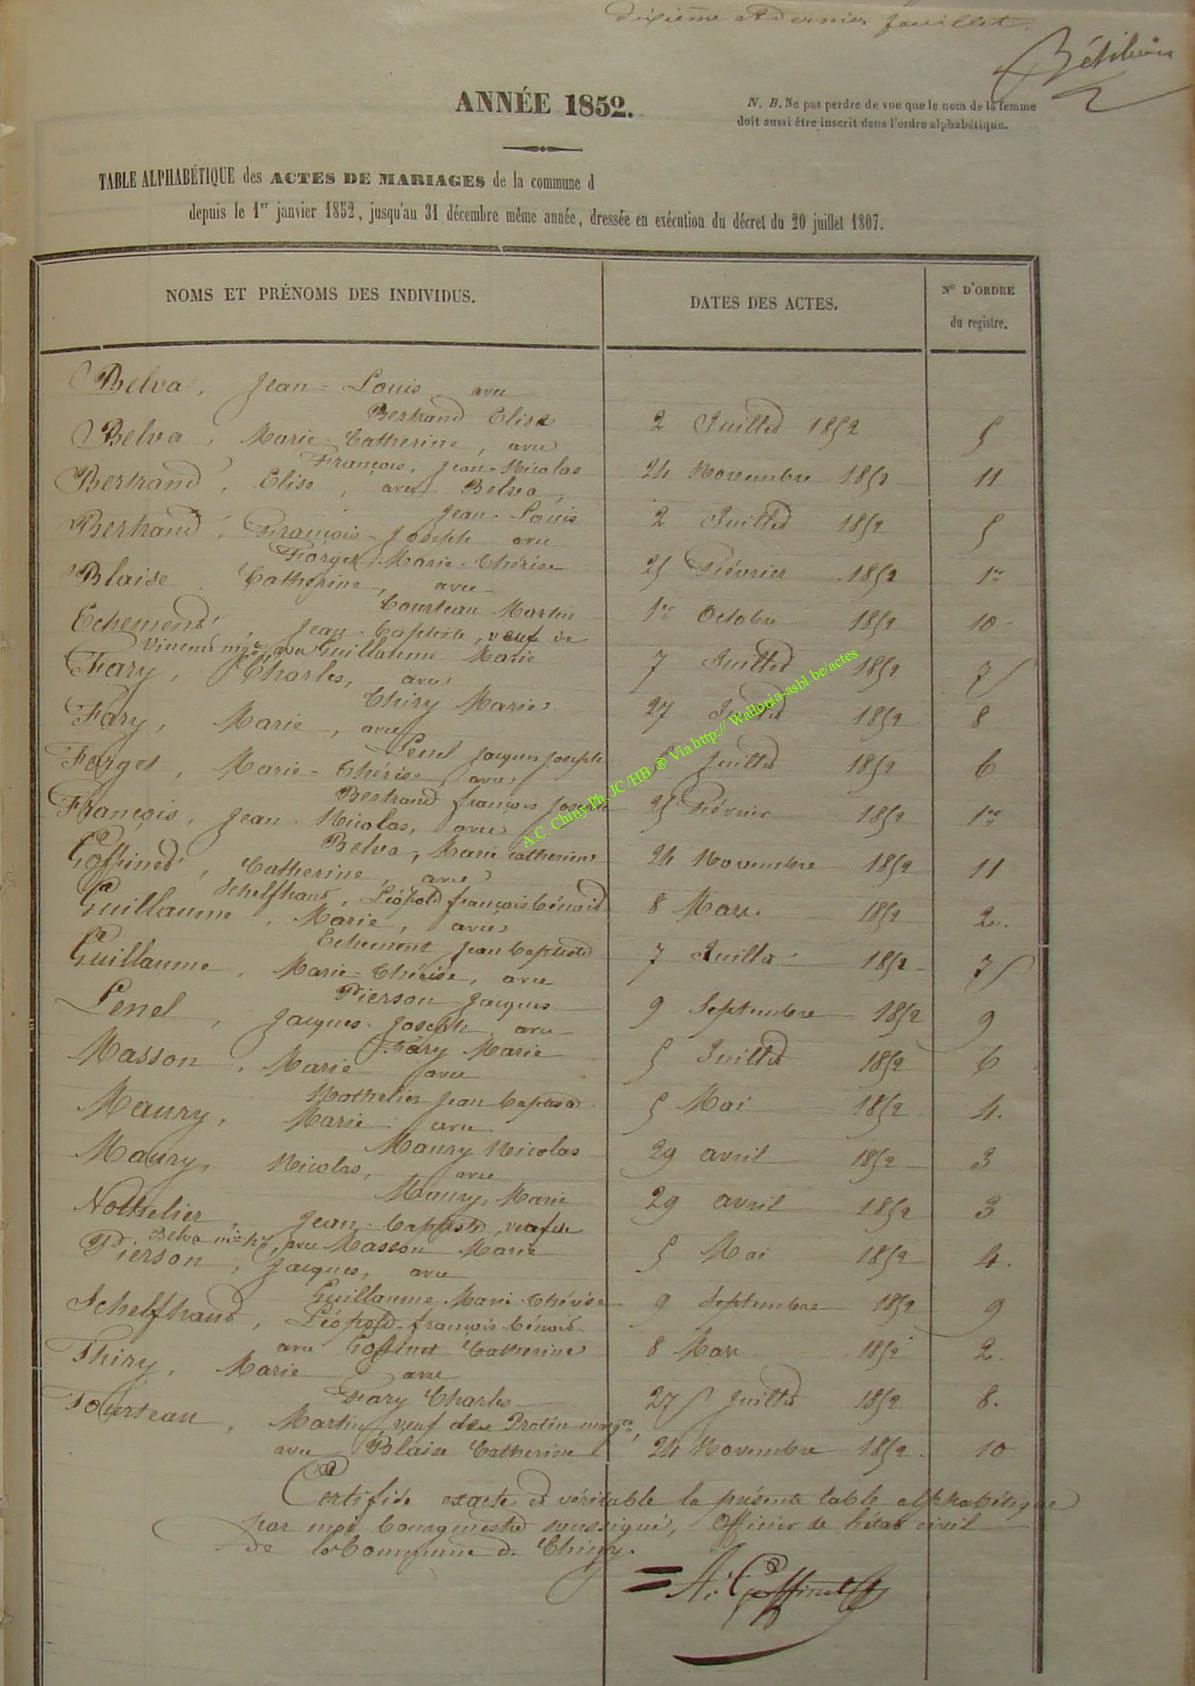 dixième et dernier feuillet.
ANNÉE 1852.
N. B. Ne pas perdre de vue que le nom de la femme
doit aussi être inscrit dans l'ordre alphabétique.
TABLE ALPHABÉTIQUE des ACTES DE MARIAGES de la commune d
depuis le 1er janvier 1852, jusqu'au 31 décembre même année, dressée en exécution du décret du 20 juillet 1807.
NOMS ET PRÉNOMS DES INDIVIDUS.
DATES DES ACTES.
N° D'ORDRE
du registre.
Belva, Jean-Louis avec
Bertrand Elise 2 Juillet 1852 5
Belva, Marie-Catherine, avec
François, Jean-Nicolas 24 Novembre 1852 11
Bertrand, Elise, avec Belva,
Jean-Louis 2 Juillet 1852 5
Bertrand, François-Joseph avec
Forget Marie-Thérèse 25 Février 1852 1er
Blaise Catherine, avec
Tourteau Martin 1er Octobre 1852 10
Echement Jean-Baptiste, veuf de
avec Guillaume Marie 7 Juillet 1852 7
Fary, Charles, avec
Thiry Marie 27 Juillet 1852 8
Fary, Marie, avec
Lenel Jacques Joseph 5 Juillet 1852 6
Forget, Marie-Thérèse avec
Bertrand françois Joseph 25 Février 1852 1er
François, Jean-Nicolas, avec
Belva, Marie Catherine 24 Novembre 1852 11
Goffinet, Catherine, avec
Schelfhaud, Léopold françois Bénoid 8 Mars 1852 2.
Guillaume, Marie, avec
Echement Jean Baptiste 7 Juillet 1852 7
Guillaume, Marie-Thérèse, avec
Pierson Jacques 9 Septembre 1852 9
Lenel, Jacques-Joseph, avec
Fary Marie 5 Juillet 1852 6
Masson, Marie avec
Nothelier Jean Baptiste 5 Mai 1852 4.
Maury, Marie avec
Maury Nicolas 29 avril 1852 3
Maury, Nicolas, avec
Maury, Marie 29 avril 1852 3
Nothelier Jean-Baptiste, veuf de
Belva avec Masson Marie 5 Mai 1852 4.
Pierson, Jacques, avec
Guillaume Marie-Thérèse 9 Septembre 1852 9
Schelfhaud, Léopold-françois-Bénoid
avec Goffinet Catherine 8 Mars 1852 2.
Thiry, Marie avec
Fary Charles 27 Juillet 1852 8.
Tourteau, Martin, veuf de Protin
avec Blaise Catherine 24 Novembre 1852 10
Certifiée exacte et véritable la présente table alphabétique
par moi bourgmestre soussigné, Officier de l'état civil
de la Commune de Chiny.
A. Goffinet
A.C. Chiny Ph. JC /HB ® Via http:// Wallonia-asbl.be/actes